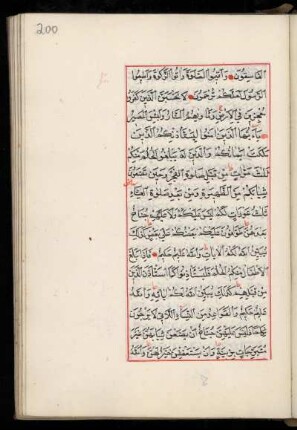 200
الفاسقون وأقيموا الصلوة وآتوا الزكوة وأطيعوا
الرسول لعلكم ترحمون لا تحسبن الذين كفروا
معجزين في الأرض ومأواهم النار ولبئس المصير
يا أيها الذين آمنوا ليستأذنكم الذين
ملكت أيمانكم والذين لم يبلغوا الحلم منكم
ثلث مرات من قبل صلوة الفجر وحين تضعون
ثيابكم من الظهيرة ومن بعد صلوة العشاء
ثلث عورات لكم ليس عليكم ولا عليهم جناح
بعدهن طوافون عليكم بعضكم على بعض كذلك
يبين الله لكم الآيات والله عليم حكيم وإذا بلغ
الأطفال منكم الحلم فليستأذنوا كما استأذن الذين
من قبلهم كذلك يبين الله لكم آياته والله
عليم حكيم والقواعد من النساء اللاتي لا يرجون
نكاحا فليس عليهن جناح أن يضعن ثيابهن غير
متبرجات بزينة وأن يستعففن خير لهن والله